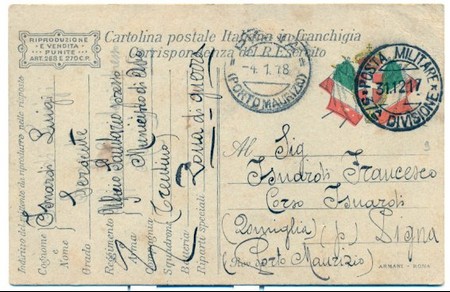 RIPRODUZIONE
E VENDITA
PUNITE
ART. 268 E 270 C.P.
Cartolina postale Italiana in franchigia
Corrispondenza del R. Esercito
4.1.18
(PORTO MAURIZIO)
POSTA MILITARE
31.12.17
57ª DIVISIONE
Indirizzo del mittente da riprodurre nelle risposte
Cognome e Nome Isnardi Luigi
Grado Sergente
Reggimento Ufficio
Arma Municipio di
Compagnia
Squadrone (Treviso)
Batteria
Riparti speciali Zona di guerra
Al Sig
Isnardi Francesco
Corso Isnardi
(p.) Ligna
(Porto Maurizio)
ARMANI - ROMA